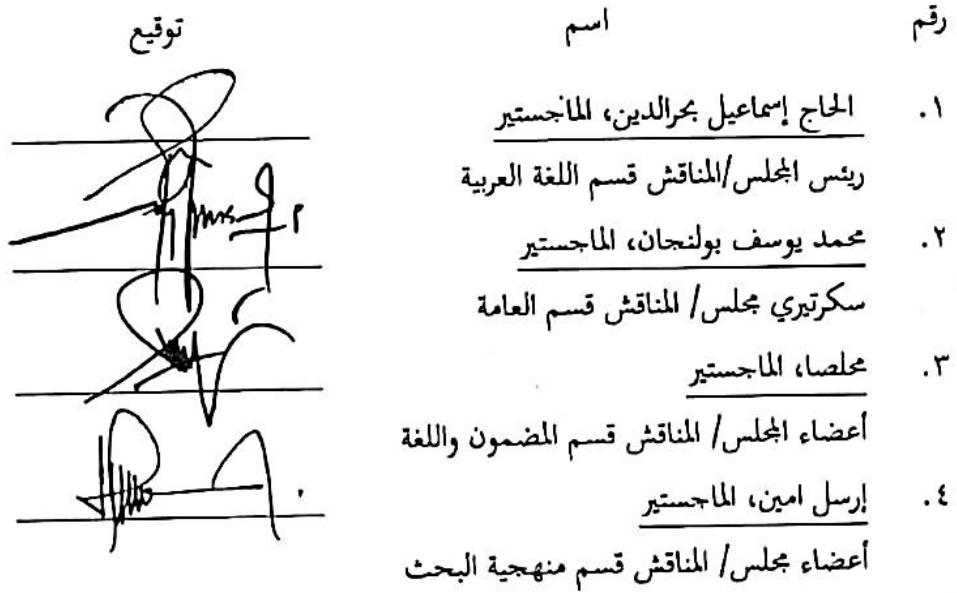 رقم اسم توقيع
١. الحاج إسماعيل بحرالدين، الماجستير
ريئس المجلس/المناقش قسم اللغة العربية
٢. محمد يوسف بولنجان، الماجستير
سكرتيري مجلس/ المناقش قسم العامة
٣. مخلصا، الماجستير
أعضاء المجلس/ المناقش قسم المضمون واللغة
٤. إرسل امين، الماجستير
أعضاء مجلس/ المناقش قسم منهجية البحث